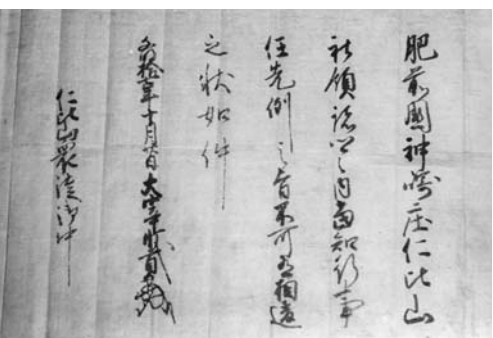 肥前國神崎庄仁比山
社領之内當知行事
任先例之旨不可有相違
之状如件
年十月日太宰少貳
仁比山衆徒御中